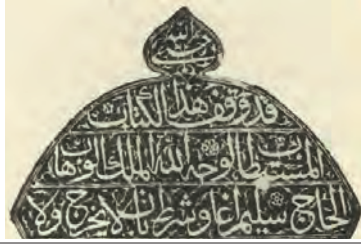 حسبي الله
قد وقف هذا الكتاب
المستطاب لوجه الله الملك الوهاب
الحاج سليم اغا وشرط بان لا يخرج ولا